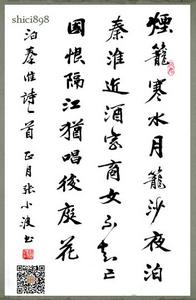 shici898
煙籠寒水月籠沙夜泊
秦淮近酒家商女不知亡
國恨隔江猶唱後庭花
泊秦淮詩一首 正月張小波書